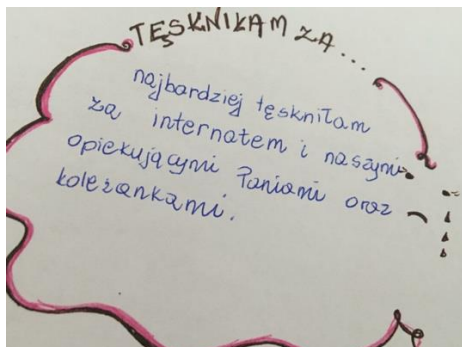 TĘSKNIŁAM ZA....
najbardziej tęskniłam
za internatem i naszymi
opiekującymi Paniami oraz
koleżankami.